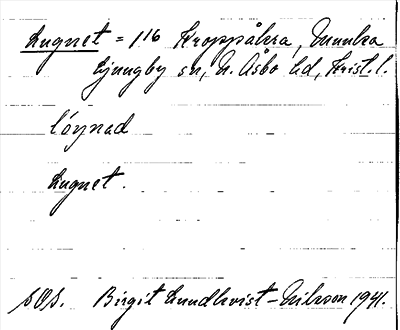 Lugnet = 1¹⁶ Kroppåkra, Munka
Ljungby sn, N. Åsbo hd, Krist. l.
lóynad
Lugnet.
SOS. Birgit Lundkvist-Nilsson 1941.